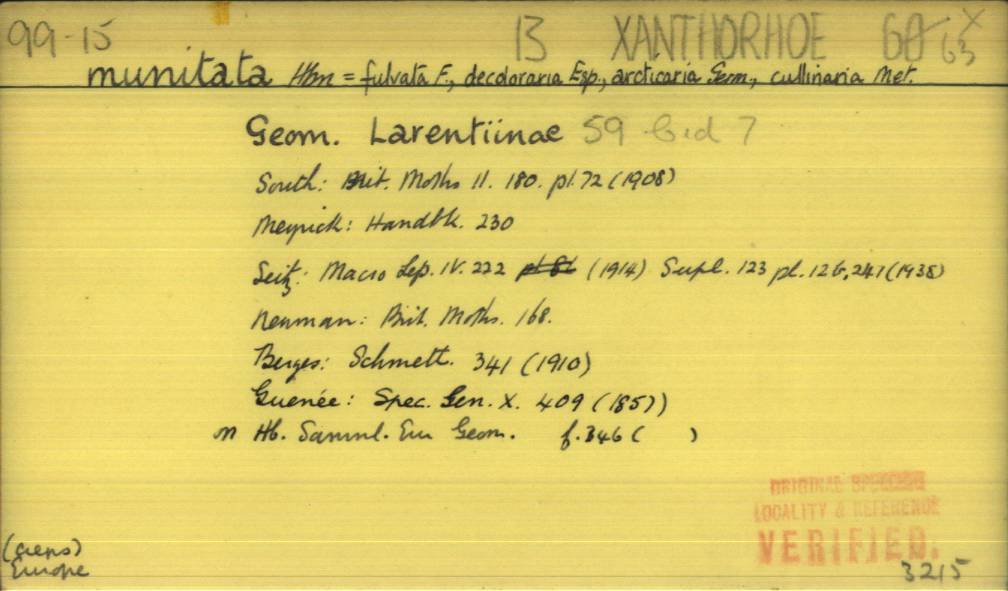 99-15 13 XANTHORHOE 60 63 X
munitata Hbn = fulvata F., decoloraria Esp., arcticaria Germ., cullinaria Met.
Geom. Larentiinae 59 b.d 7
South: Brit. Moths II. 180. pl. 72 (1908)
Meyrick: Handbk. 230
Seitz: Macro Lep. IV. 222 (1914) Supl. 123 pl. 12 b, 241 (1938)
Newman: Brit. Moths. 168.
Berges: Schmett. 341 (1910)
Guenée: Spec. Gen. X. 409 (1857)
n Hb. Samml. Eur Geom. f. 346 ( )
ORIGINAL SPECIES
LOCALITY & REFERENCE
VERIFIED.
Europe
3215